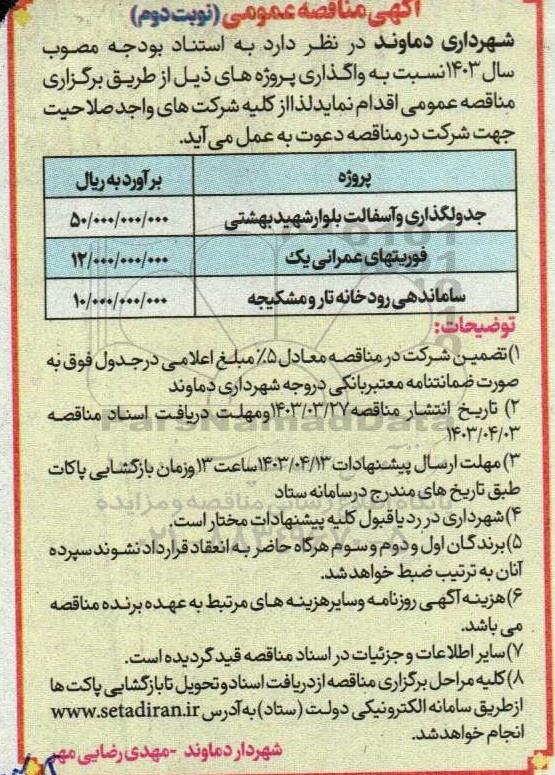 آگهی مناقصه عمومی (نوبت دوم)
شهرداری دماوند در نظر دارد به استناد بودجه مصوب
سال ۱۴۰۳نسبت به واگذاری پروژه های ذیل از طریق برگزاری
مناقصه عمومی اقدام نمایدلذااز کلیه شرکت های واجدصلاحیت
جهت شرکت درمناقصه دعوت به عمل می آید.
پروژه برآوردبه ریال
جدولگذاری وآسفالت بلوارشهیدبهشتی ۵۰/۰۰۰/۰۰۰/۰۰۰
فوریتهای عمرانی یک ۱۲/۰۰۰/۰۰۰/۰۰۰
ساماندهی رودخانه تار و مشکیجه ۱۰/۰۰۰/۰۰۰/۰۰۰
توضیحات:
۱)تضمین شرکت در مناقصه معادل ۵٪ مبلغ اعلامی درجدول فوق به
صورت ضمانتنامه معتبربانکی دروجه شهرداری دماوند
۲) تاریخ انتشار مناقصه ۱۴۰۳/۰۳/۲۷ومهلت دریافت اسناد مناقصه
۱۴۰۳/۰۴/۰۳
۳) مهلت ارسال پیشنهادات ۱۴۰۳/۰۴/۱۳ساعت ۱۳وزمان بازگشایی پاکات
طبق تاریخ های مندرج درسامانه ستاد
۴)شهرداری در رد یاقبول کلیه پیشنهادات مختار است.
۵)برندگان اول و دوم و سوم هرگاه حاضر به انعقاد قرارداد نشوند سپرده
آنان به ترتیب ضبط خواهدشد.
۶)هزینه آگهی روزنامه وسایرهزینه های مرتبط به عهده برنده مناقصه
می باشد.
۷)سایر اطلاعات وجزئیات در اسناد مناقصه قیدگردیده است.
۸)کلیه مراحل برگزاری مناقصه ازدریافت اسنادوتحویل تابازگشایی پاکت ها
ازطریق سامانه الکترونیکی دولت (ستاد)به آدرس www.setadiran.ir
انجام خواهدشد.
شهردار دماوند -مهدی رضایی مهر
ParsNamadData